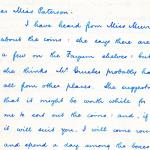 ear Miss Paterson.
I have heard from Miss Murr
about the coins: she says there are
a few on the Fayum shelves: but
she thinks Mr probably ha
all from other places. She suggests
that it might be worth while for
me to sort out the coins: and, if
it will suit you, I will come roun
and spend a day among the boxes